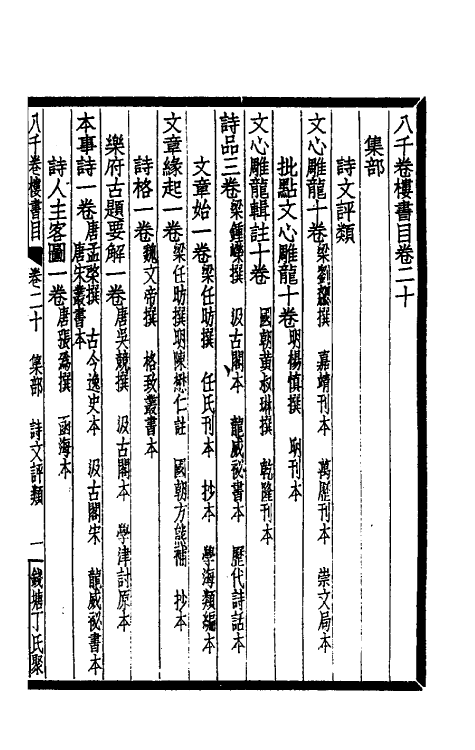 八千卷樓書目卷二十
集部
詩文評類
文心雕龍十卷梁劉勰撰 嘉靖刊本 萬歷刊本 崇文局本
批點文心雕龍十卷明楊慎撰 明刊本
文心雕龍輯註十卷國朝黃叔琳撰 乾隆刊本
詩品三卷梁鍾嶸撰 汲古閣本 龍威祕書本 歷代詩話本
文章始一卷梁任昉撰 任氏刊本 抄本 學海類編本
文章緣起一卷梁任昉撰明陳懋仁註 國朝方熊補 抄本
詩格一卷魏文帝撰 格致叢書本
樂府古題要解一卷唐吳兢撰 汲古閣本 學津討原本
本事詩一卷唐孟棨撰 古今逸史本 汲古閣本 龍威祕書本
唐宋叢書本
詩人主客圖一卷唐張爲撰 函海本
八千卷樓書目 卷二十 集部 詩文評類 一 錢塘丁氏聚